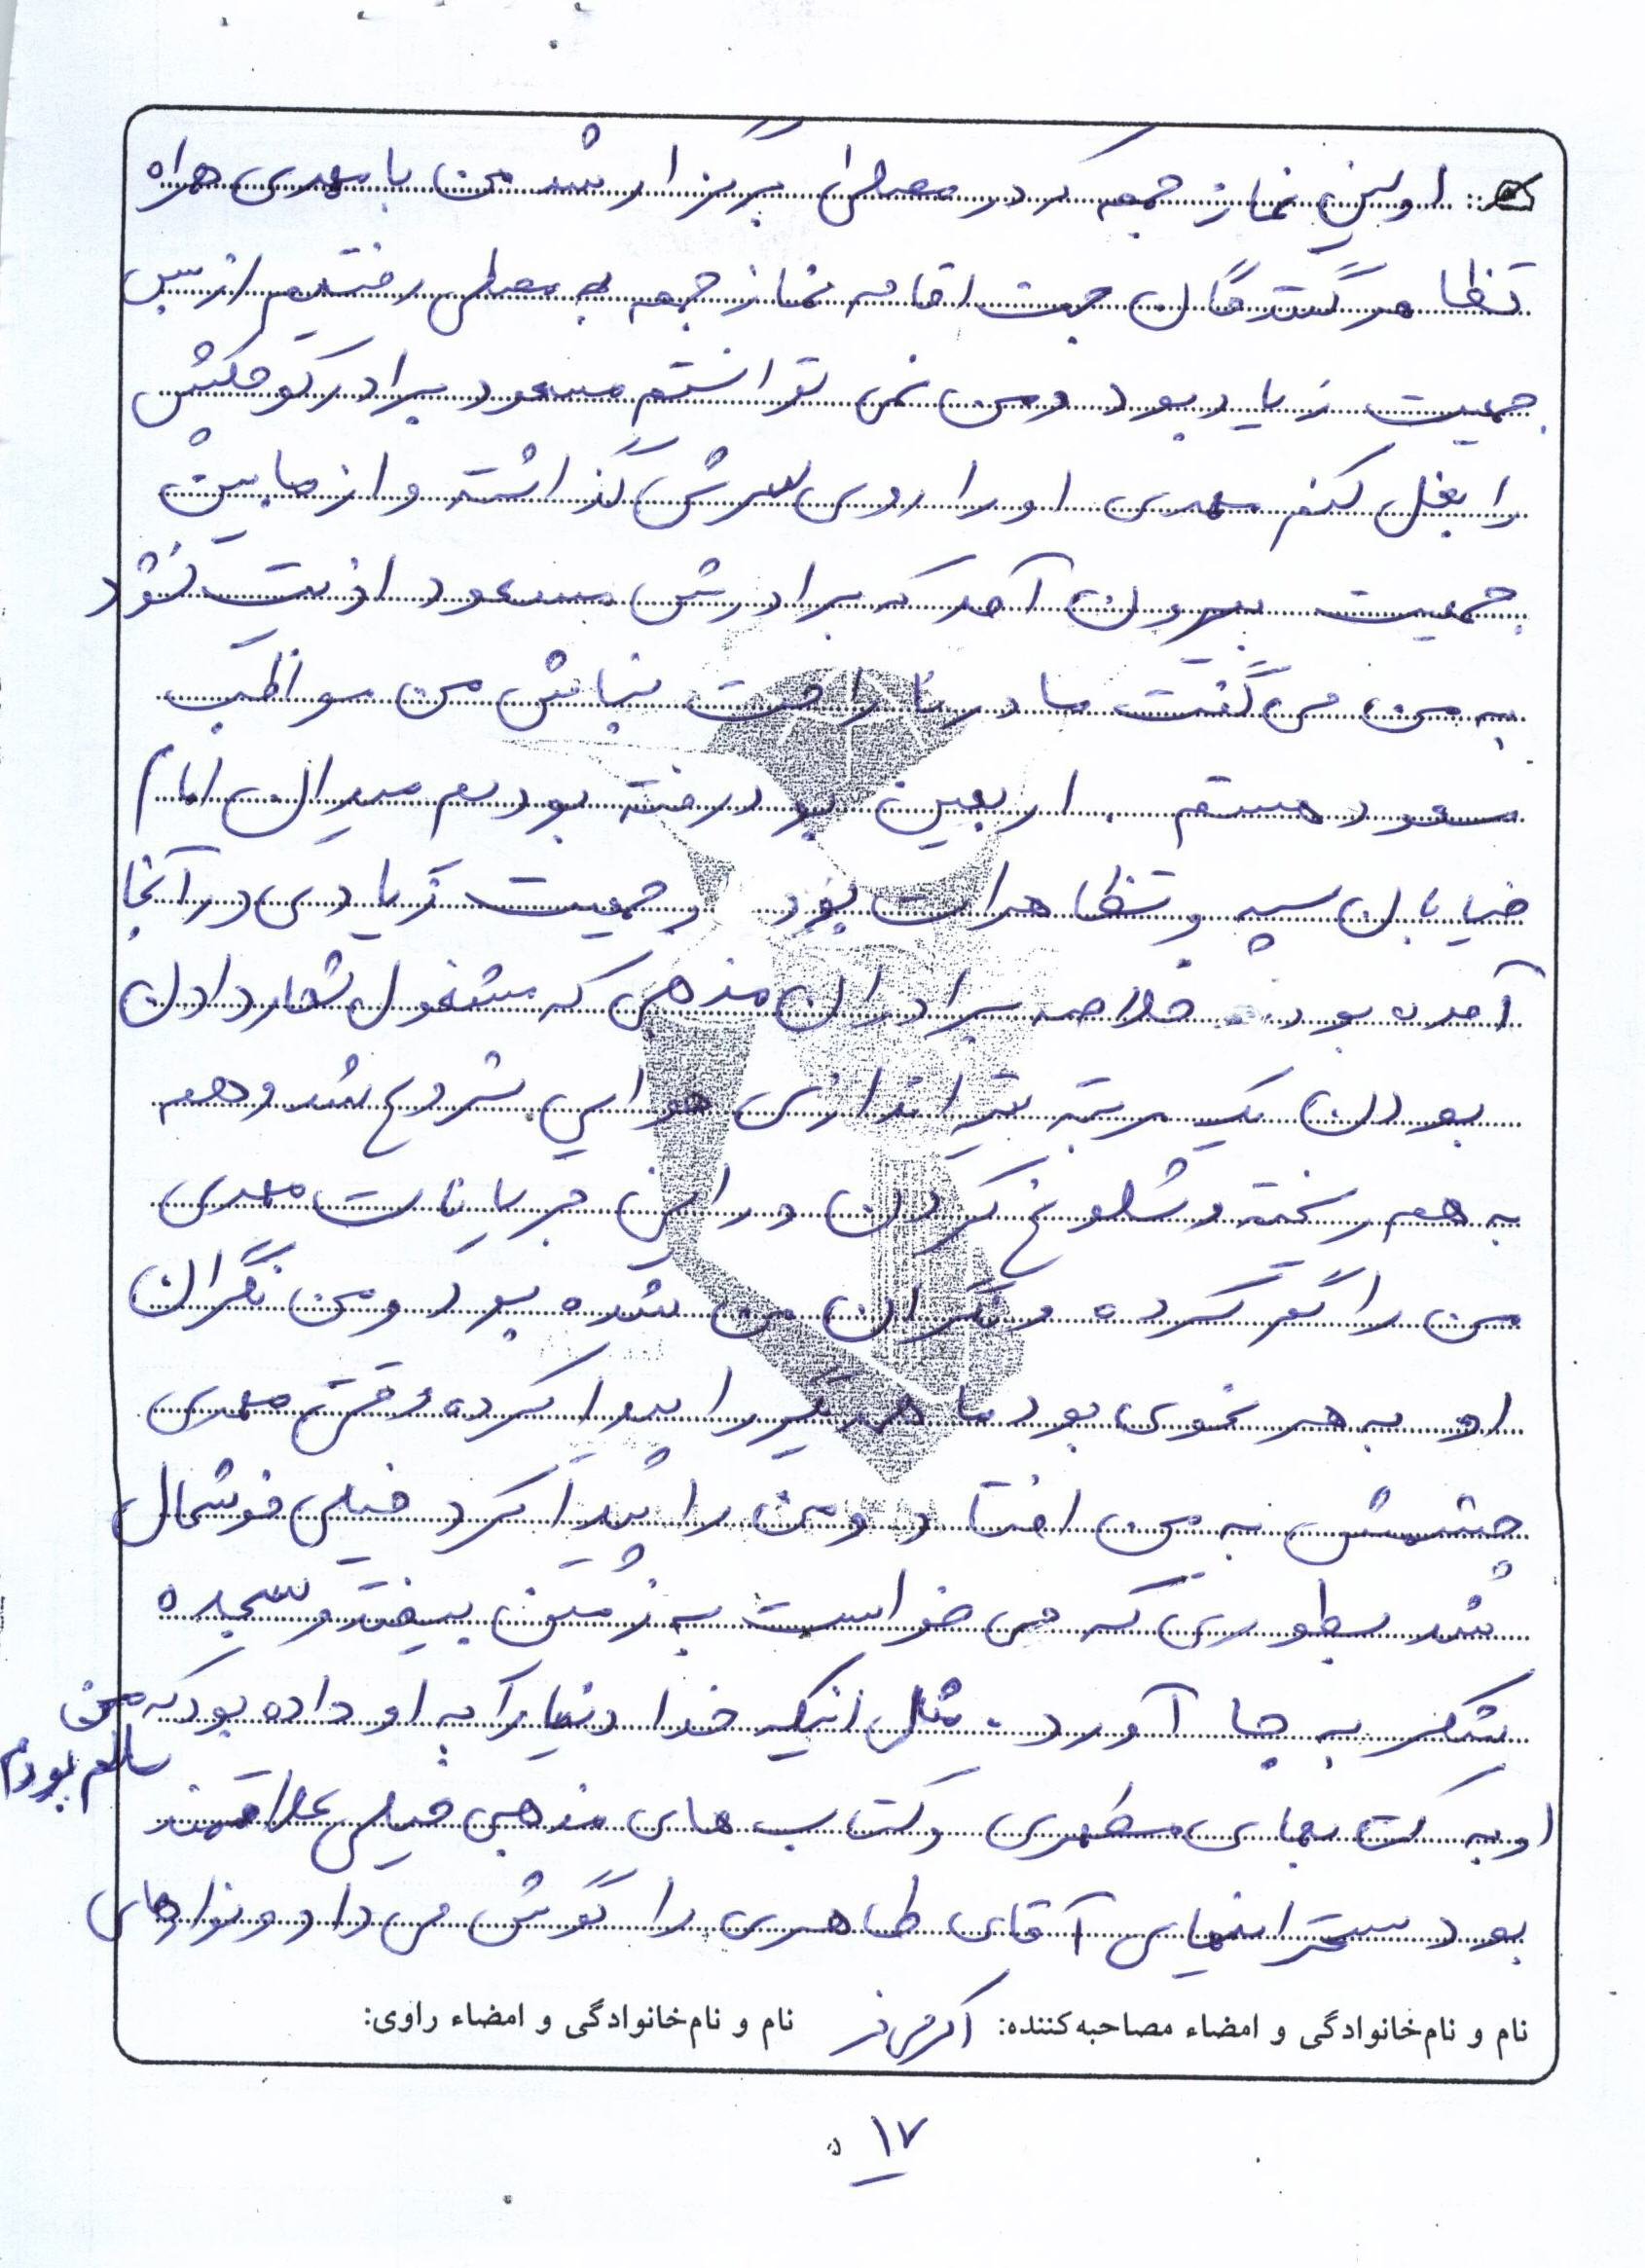 اولین نماز جمعه که در مصلی برگزار شد من با مهدی همراه
تظاهر کنندگان جهت اقامه نماز جمعه به مصلی رفتیم از بس
جمعیت زیاد بود و من نمی توانستم مسعود برادر کوچکش
را بغل کنم مهدی او را روی سرش گذاشته و از ما بین
جمعیت بیرون آمد که برادرش مسعود اذیت نشود
به من می گفت مادر ناراحت نباش من مواظب
مسعود هستم . اربعین بود رفته بودیم میدان امام
خیابان سپه و تظاهرات بود و جمعیت زیادی در آنجا
آمده بود خلاصه برادران مذهبی که مشغول شعار دادن
بودن یک مرتبه تیراندازی هوایی شروع شد و همه
به هم ریخته و شلوغ کردن در این جریانات مهدی
من را گم کرده و نگران من شده بود و من نگران
او به هر نحوی بود ما همدیگر را پیدا کرده وقتی مهدی
چشمش به من افتاد و من را پیدا کرد خیلی خوشحال
شد بطوری که می خواست به زمین بیفتد و سجده
شکر به جا آورد . مثل اینکه خدا دنیا را به او داده بود که من
سالم بودم
او به کتابهای مطهری و کتاب های مذهبی خیلی علاقمند
بود سخنرانیهای آقای طاهری را گوش می داد و نوارهای
نام و نام‌خانوادگی و امضاء مصاحبه‌کننده: نام و نام‌خانوادگی و امضاء راوی:
۱۷